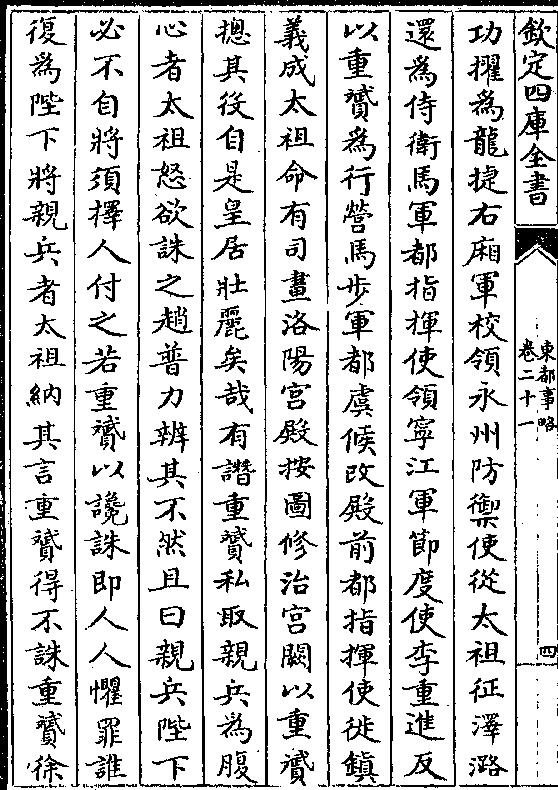 欽定四庫全書
東都事略
卷二十一
四
功擢為龍捷右廂軍校領永州防禦使從太祖征澤潞
還為侍衛馬軍都指揮使領寧江軍節度使李重進反
以重贇為行營馬步軍都虞候改殿前都指揮使徙鎮
義成太祖命有司畫洛陽宮殿按圖修治宮闕以重贇
摠其役自是皇居壯麗矣哉有譖重贇私取親兵為腹
心者太祖怒欲誅之趙普力辨其不然且曰親兵陛下
必不自將須擇人付之若重贇以讒誅即人人懼罪誰
復為陛下將親兵者太祖納其言重贇得不誅重贇徐